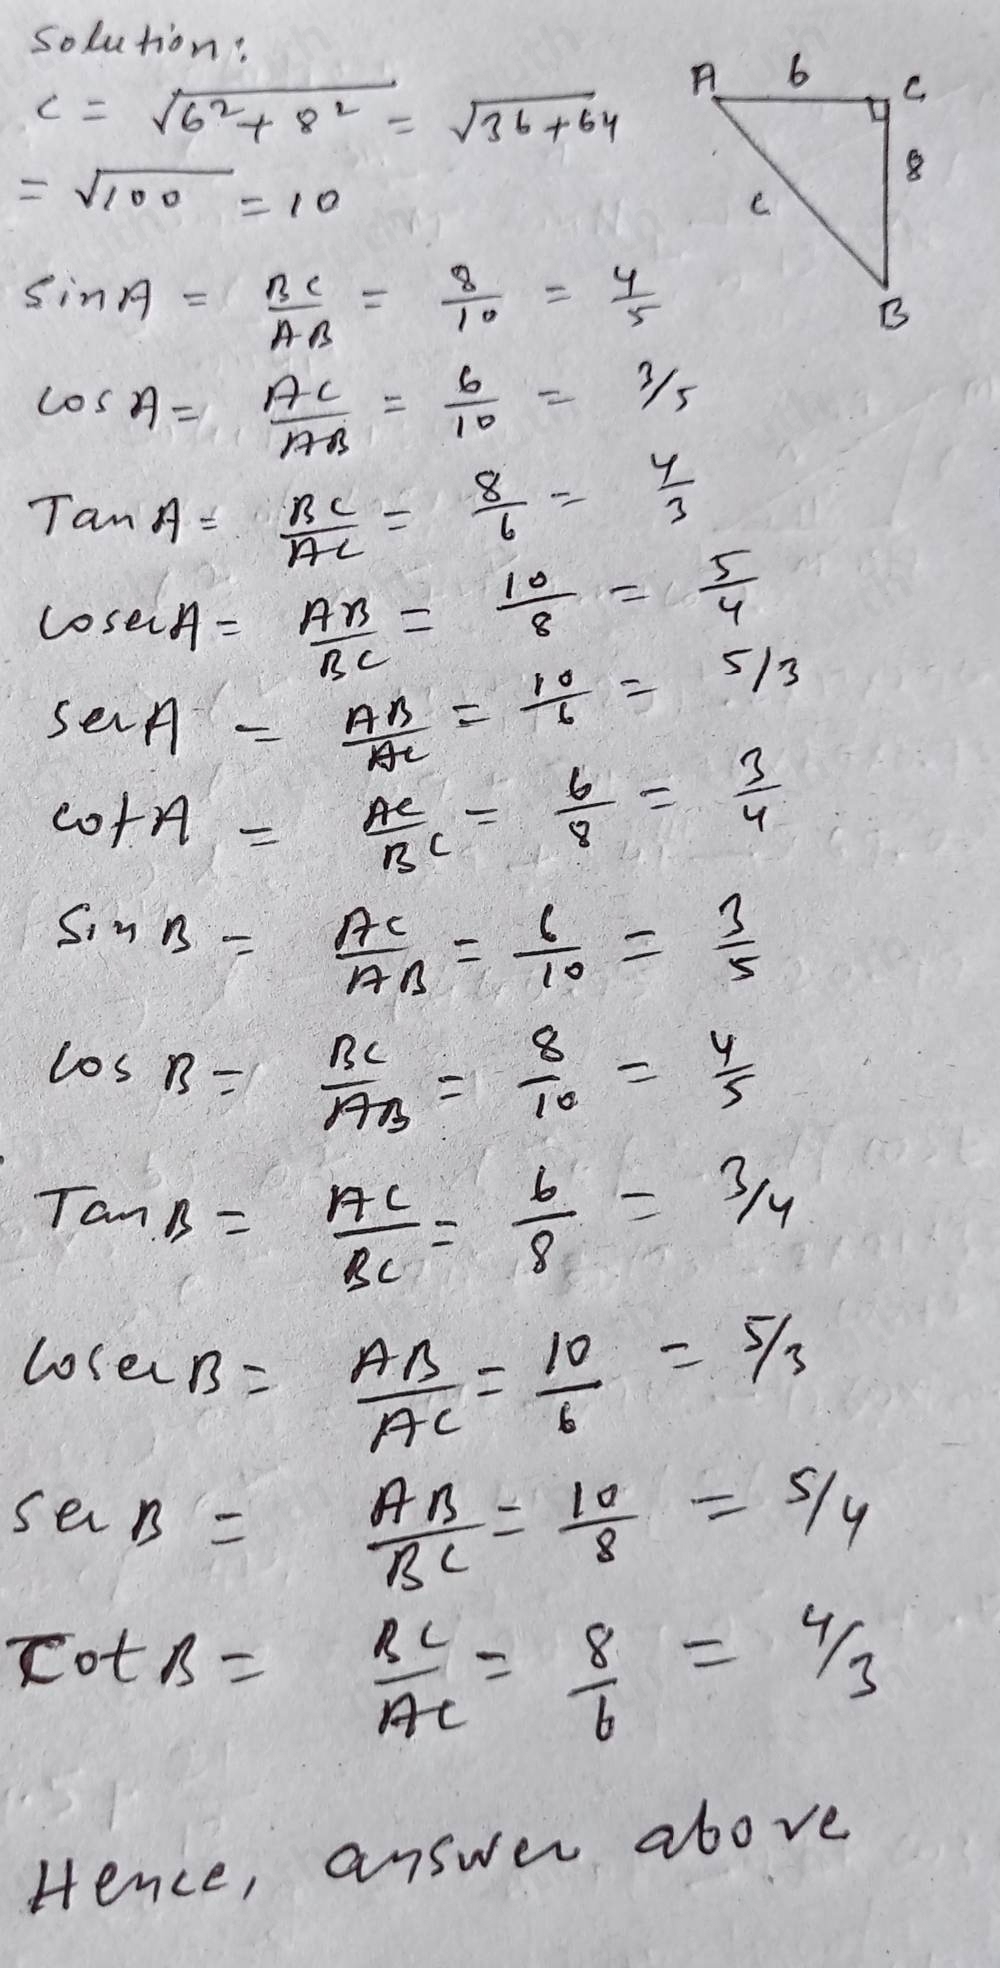 Solution:
c = √6²+8² = √36+64
= √100 = 10
A 6 C
8
c
B
SinA = BC/AB = 8/10 = 4/5
cosA = AC/AB = 6/10 = 3/5
TanA = BC/AC = 8/6 = 4/3
cosecA = AB/BC = 10/8 = 5/4
secA = AB/AC = 10/6 = 5/3
cotA = AC/BC = 6/8 = 3/4
Sin B = AC/AB = 6/10 = 3/5
cos B = BC/AB = 8/10 = 4/5
Tan B = AC/BC = 6/8 = 3/4
cosec B = AB/AC = 10/6 = 5/3
sec B = AB/BC = 10/8 = 5/4
Cot B = BC/AC = 8/6 = 4/3
Hence, answer above